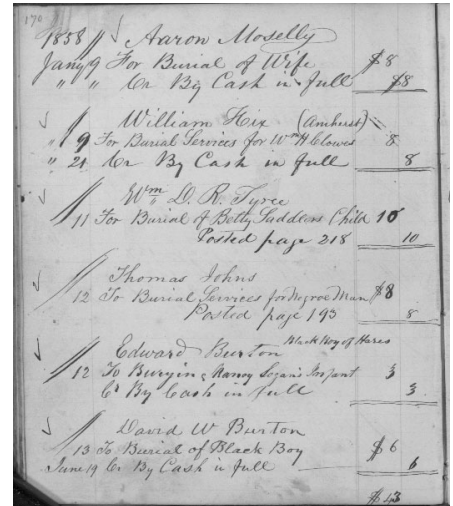 170
1858 // Aaron Moselly
Jany 9 For Burial of Wife $8
" " Cr By Cash in full $8
William Hix (Amherst)
" 9 For Burial Services for Wm H Clowes 8
" 21 Cr By Cash in full 8
Wm D. R. Tyree
11 For Burial of Betty Saddlers Child 10
Posted page 218 10
Thomas Johns
12 To Burial Services for Negroe Man $8
Posted page 193 8
Edward Burton Black Boy of Hares
12 To Nancy Infant 3
Cr By Cash in full 3
David W Burton
13 To Burial of Black Boy $6
June 19 Cr By Cash in full 6